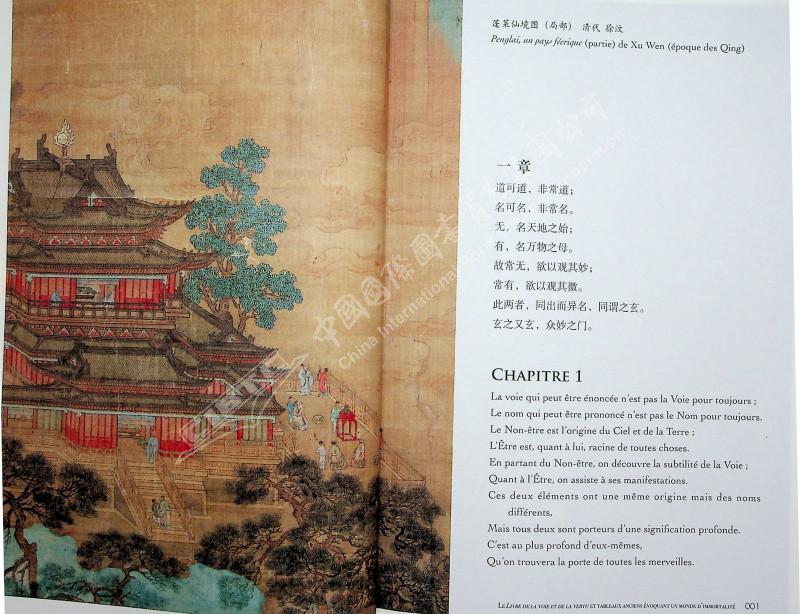 蓬莱仙境图（局部） 清代 徐汶
Penglai, un pays féerique (partie) de Xu Wen (époque des Qing)
一 章
道可道，非常道；
名可名，非常名。
无，名天地之始；
有，名万物之母。
故常无，欲以观其妙；
常有，欲以观其徼。
此两者，同出而异名，同谓之玄。
玄之又玄，众妙之门。
CHAPITRE 1
La voie qui peut être énoncée n'est pas la Voie pour toujours ;
Le nom qui peut être prononcé n'est pas le Nom pour toujours.
Le Non-être est l'origine du Ciel et de la Terre ;
L'Être est, quant à lui, racine de toutes choses.
En partant du Non-être, on découvre la subtilité de la Voie ;
Quant à l'Être, on assiste à ses manifestations.
Ces deux éléments ont une même origine mais des noms
différents,
Mais tous deux sont porteurs d'une signification profonde.
C'est au plus profond d'eux-mêmes,
Qu'on trouvera la porte de toutes les merveilles.
LE LIVRE DE LA VOIE ET DE LA VERTU ET TABLEAUX ANCIENS ÉVOQUANT UN MONDE D'IMMORTALITÉ 001
中國國際圖書
China International
Corporation